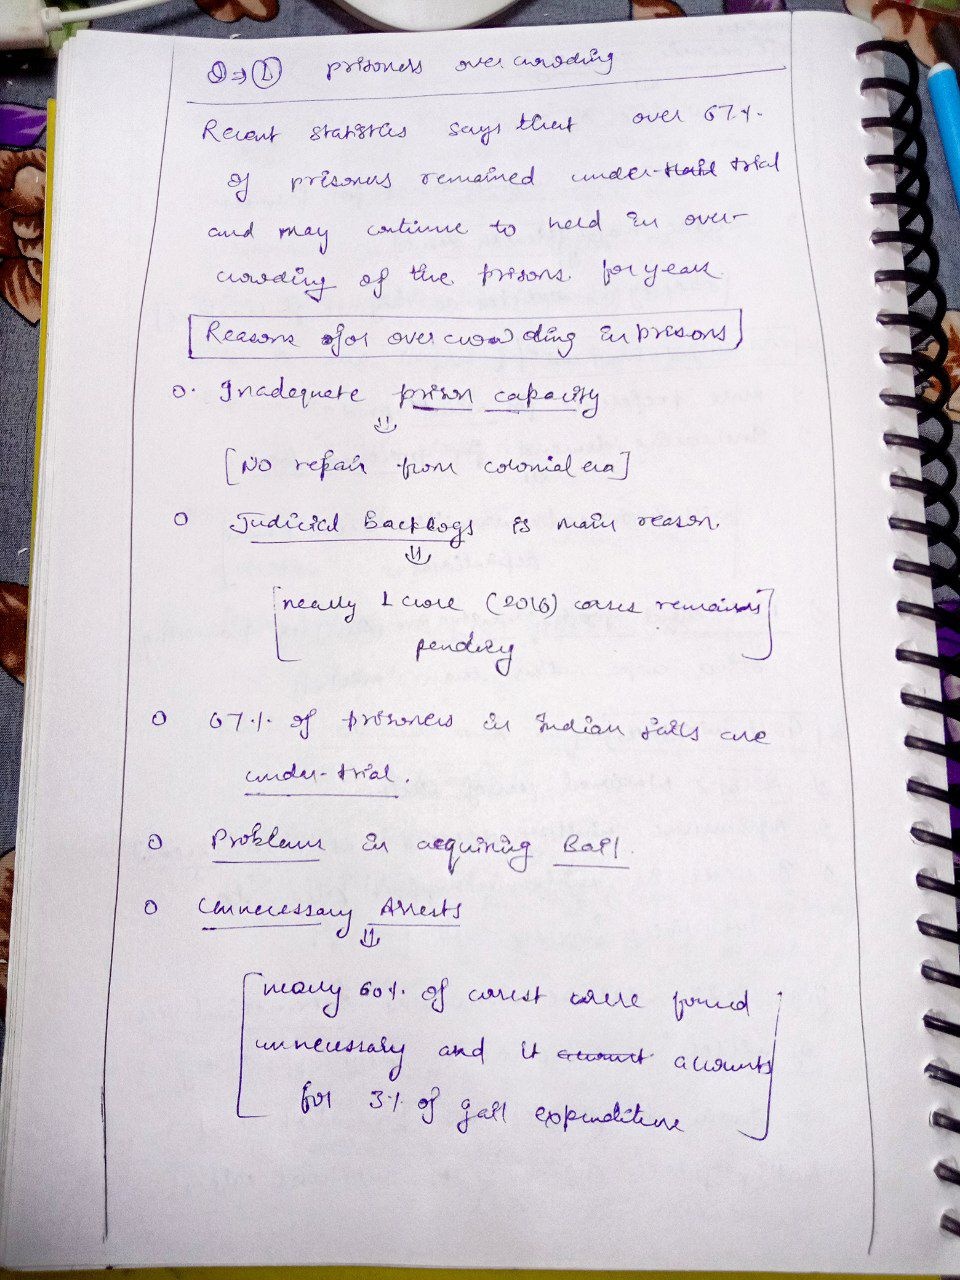 Q⇒ (1) prisoners over crowding
Recent statistics says that over 67%.
of prisoners remained under-trial
and may continue to held in over-
crowding of the prisons for years.
Reasons for over crowding in prisons
o. Inadequate prison capacity
[No repair from colonial era]
o Judicial Backlogs is main reason.
[nearly 1 crore (2016) cases remains
pending]
o 67% of prisoners in Indian jails are
under-trial.
o Problems in acquiring Bail.
o Unnecessary Arrests
[nearly 60% of arrest were found
unnecessary and it accounts
for 3% of jail expenditure]